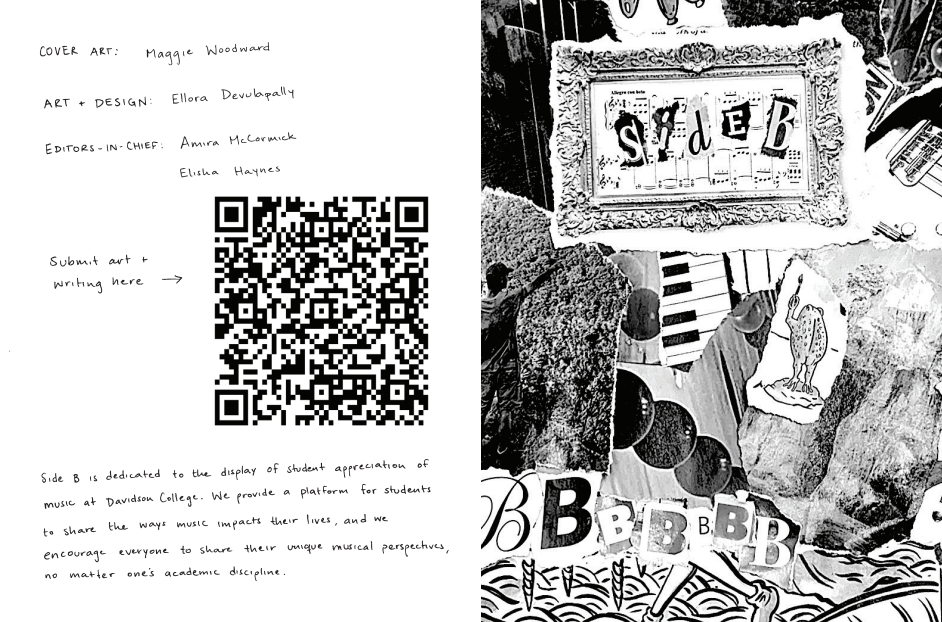 COVER ART: Maggie Woodward
ART + DESIGN: Ellora Devulapally
EDITORS-IN-CHIEF: Amira McCormick
Elisha Haynes
Submit art +
writing here →
Side B is dedicated to the display of student appreciation of
music at Davidson College. We provide a platform for students
to share the ways music impacts their lives, and we
encourage everyone to share their unique musical perspectives,
no matter one's academic discipline.
Allegro con brio
SidEB
BBBBBBB